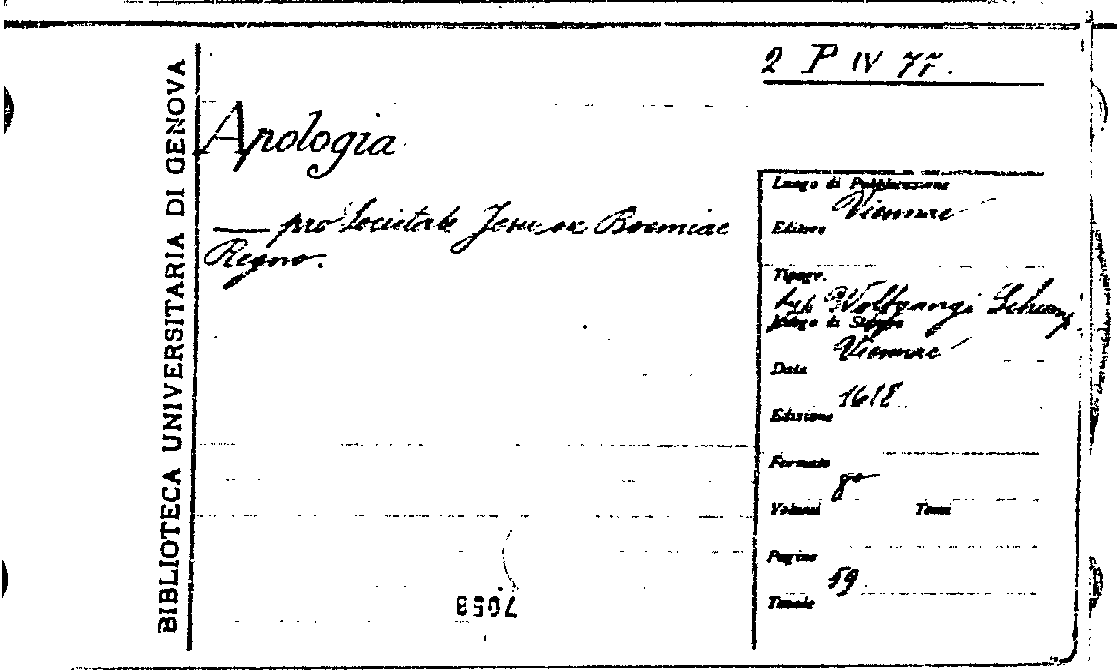 BIBLIOTECA UNIVERSITARIA DI GENOVA
2 P IV 77.
Apologia
— pro Societate Jesu ex Boemiae
Regno.
Luogo di Pubblicazione
Viennae
Editore
Tipogr.
typ. Wolfgangi
Luogo di Stampa
Viennae
Data
1618
Edizione
Formato
8°
Volumi Tomi
Pagine
59
Tavole
7058